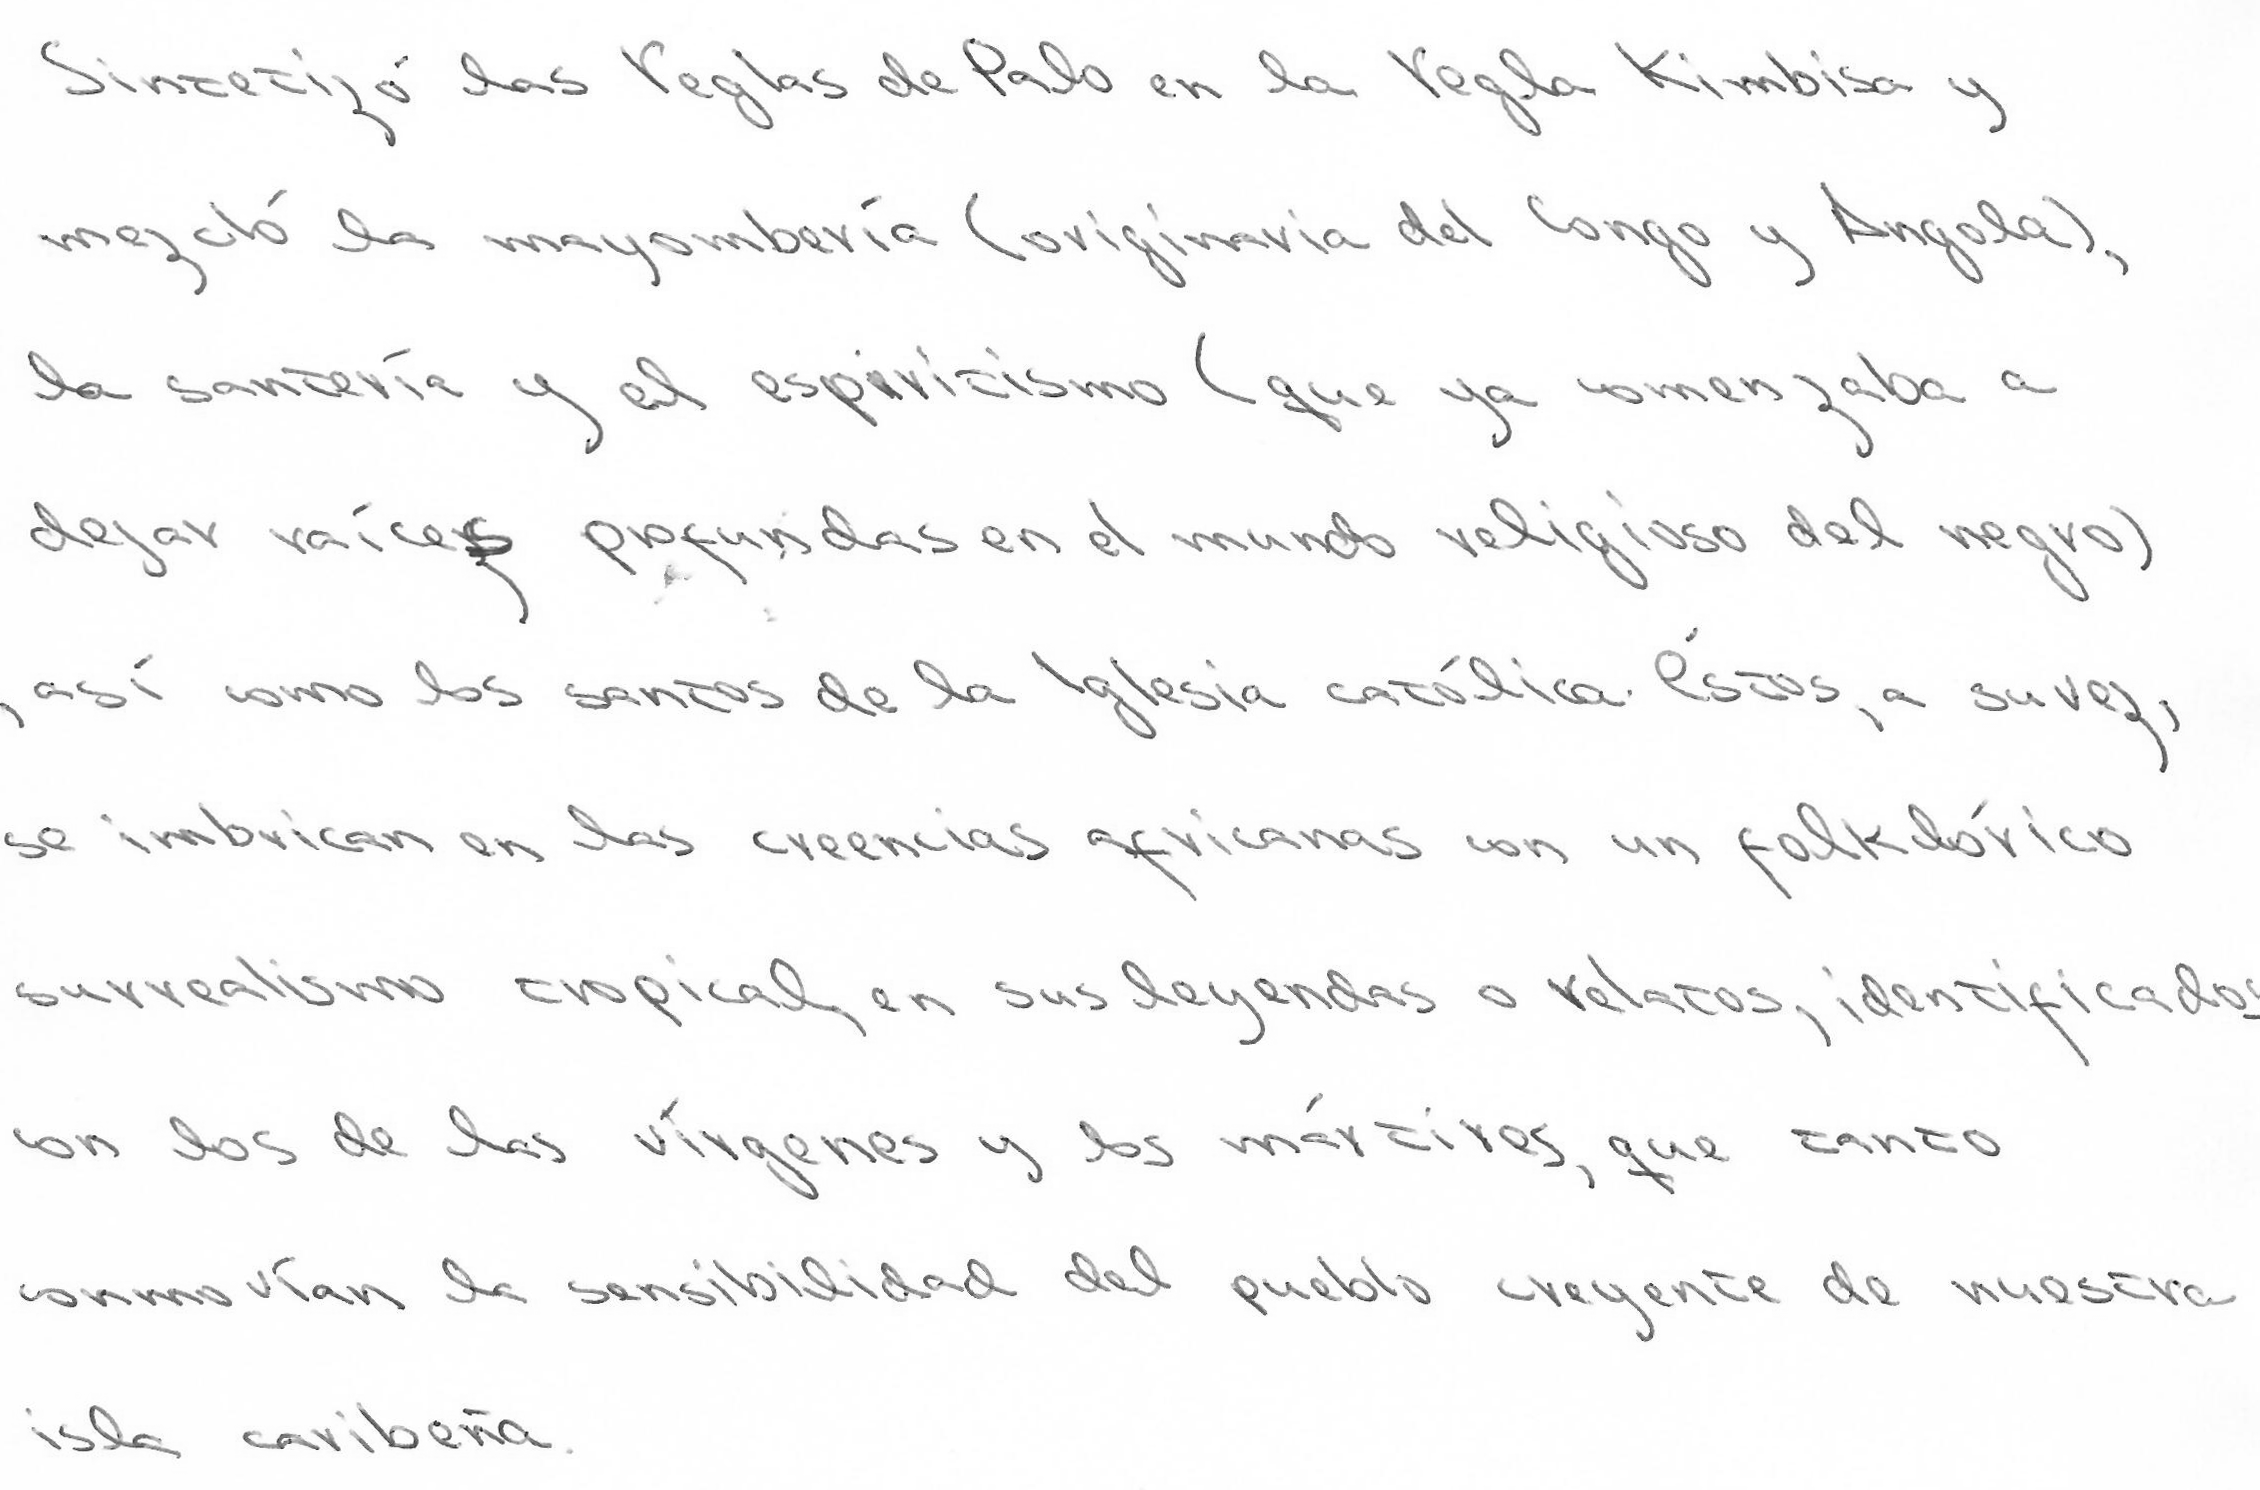 Sintetizó las Reglas de Palo en la Regla Kimbisa y
mezcló la mayombería (originaria del Congo y Angola),
la santería y el espiritismo (que ya comenzaba a
dejar raíces profundas en el mundo religioso del negro)
, así como los santos de la Iglesia católica. Éstos, a su vez,
se imbrican en las creencias africanas con un folklórico
surrealismo tropical, en sus leyendas o relatos, identificados
con los de las vírgenes y los mártires, que tanto
conmovían la sensibilidad del pueblo creyente de nuestra
isla caribeña.